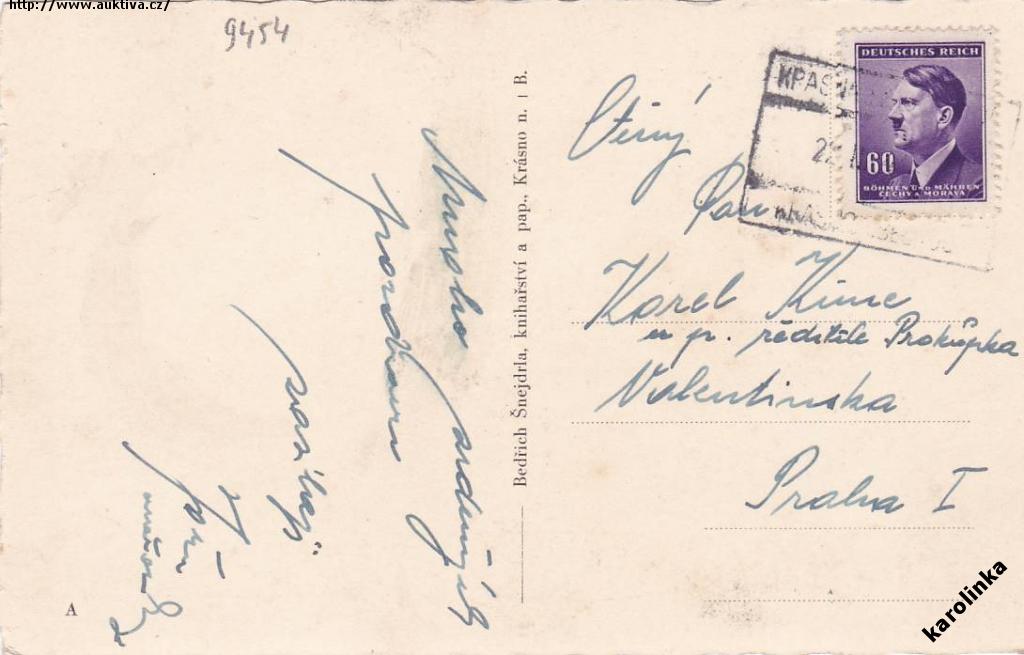 http://www.auktiva.cz/
9454
Mnoho srdečných
pozdravů
zasílají
Bedřich Šnejdrla, knihařství a pap., Krásno n. B.
DEUTSCHES REICH
60
BÖHMEN UND MÄHREN
ČECHY A MORAVA
KRÁSN
22
Ctěný
Pan
Karel
u p. ředitele Prokůpka
Valentinska
Praha I
A
karolinka